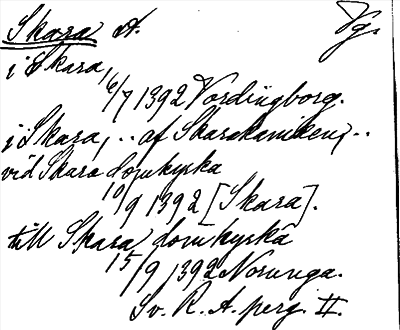 Skara A. Vg.
i Skara,
6/7 1392 Vordingborg.
i Skara, .. af Skarakaniken, ..
vid Skara domkyrka
10/9 1392 [Skara].
till Skara domkyrka
15/9 1392 Norunga.
Sv. R. A. perg. II.